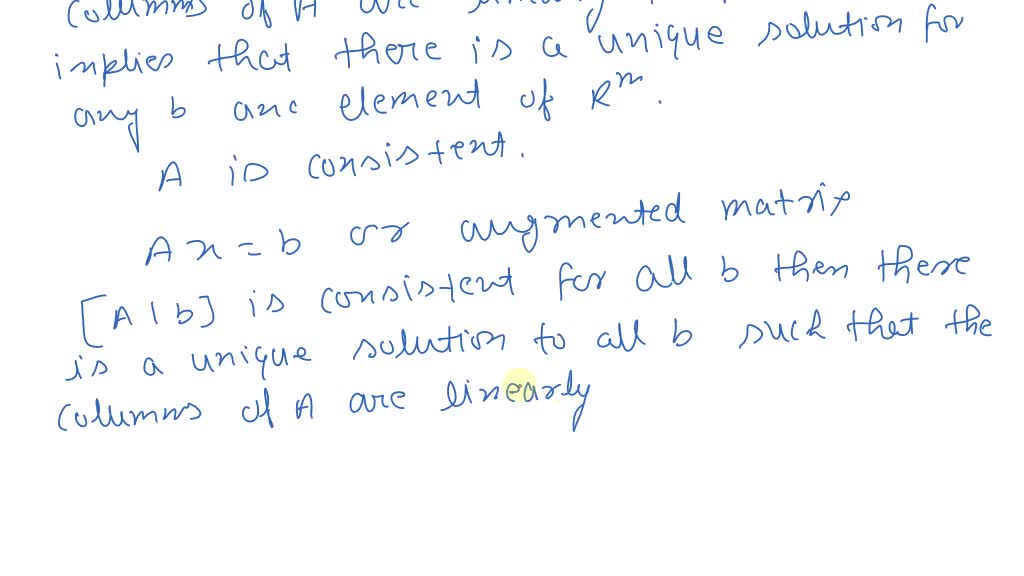 Columns of A are
implies that there is a unique solution for
any b anc element of R^m.
A is consistent.
Ax = b or augmented matrix
[A | b] is consistent for all b then there
is a unique solution to all b such that the
columns of A are linearly